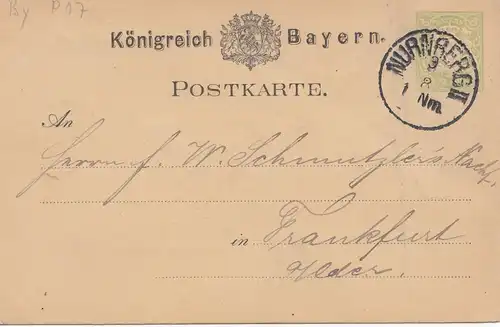 By P17
Königreich Bayern.
NÜRNBERG II
9
8
1 Nm.
POSTKARTE.
An
Herrn J. W. Schmutzler's Nachf.
in Frankfurt
a/Oder.